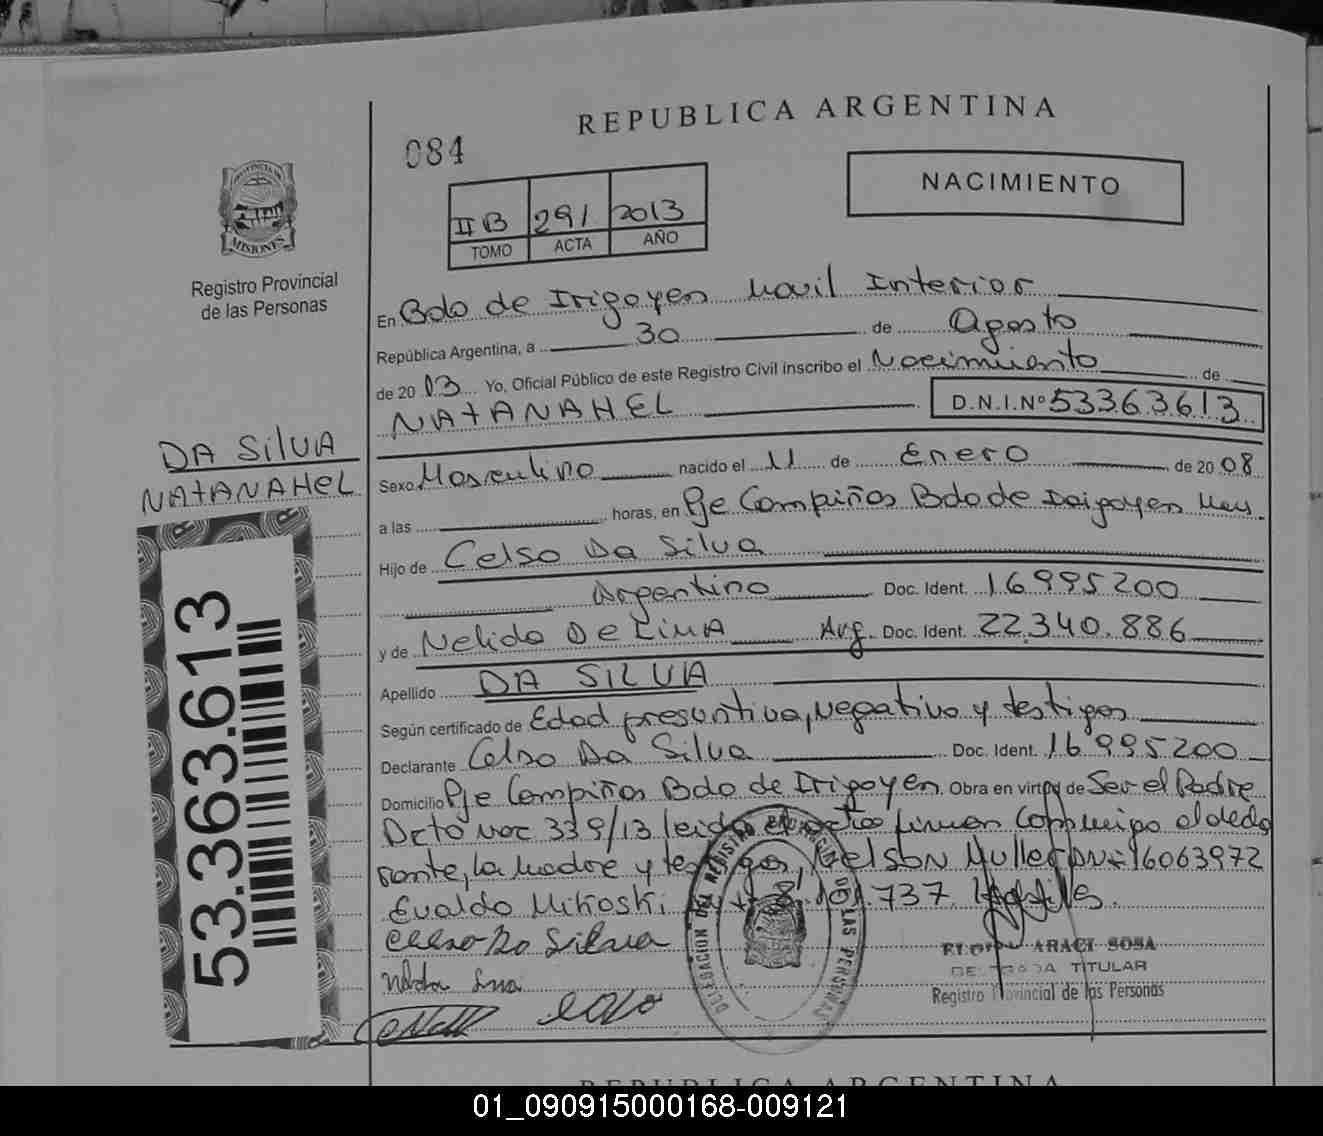 REPUBLICA ARGENTINA
084
NACIMIENTO
II B 291 2013
TOMO ACTA AÑO
MISIONES
Registro Provincial
de las Personas
En Bdo de Irigoyen Movil Interior
República Argentina, a 30 de Agosto
de 20 13 Yo, Oficial Público de este Registro Civil inscribo el Nacimiento de
NATANAHEL D.N.I.Nº 53363613
DA SILVA
NATANAHEL
Sexo Masculino nacido el 11 de Enero de 20 08
a las horas, en Pje Campiñas Bdo de Irigoyen Mns.
Hijo de Celso Da Silva
Argentino Doc. Ident. 16995200
y de Nelida De Lima Arg. Doc. Ident. 22.340.886
Apellido DA SILVA
Según certificado de Edad presuntiva, Negativo y testigos
Declarante Celso Da Silva Doc. Ident. 16 995200
Domicilio Pje Campiñas Bdo de Irigoyen. Obra en virtud de Ser el Padre
Dcto Nac 339/13 leida el acta firman conmigo el decla
rante, la madre y testigos, Nelson Muller DNI 16063972
Evaldo Mikoski 737
Celso Da Silva
Nelida Lima
DELEGACION DEL REGISTRO PROVINCIAL DE LAS PERSONAS
ARACI SOSA
DELEGADA TITULAR
Registro Provincial de las Personas
53.363.613
REPUBLICA ARGENTINA
01_090915000168-009121